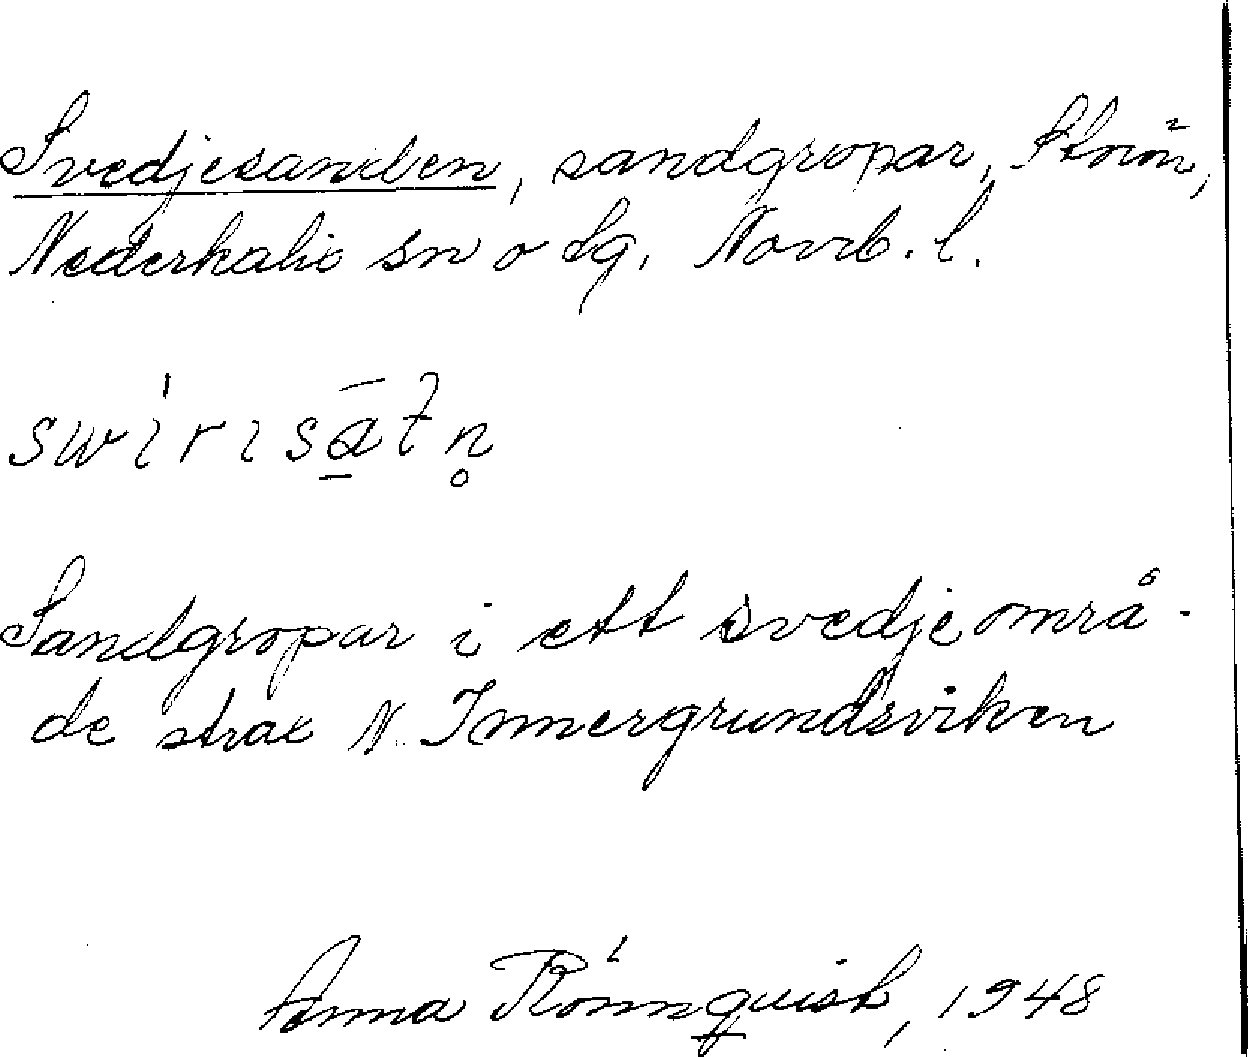 Svedjesanden, sandgropar, Storön,
Nederkalix sn o sg. Norrb. l.
Sandgropar i ett svedjeområ-
de strax N. Innergrundsviken
Anna Rönnquist, 1948